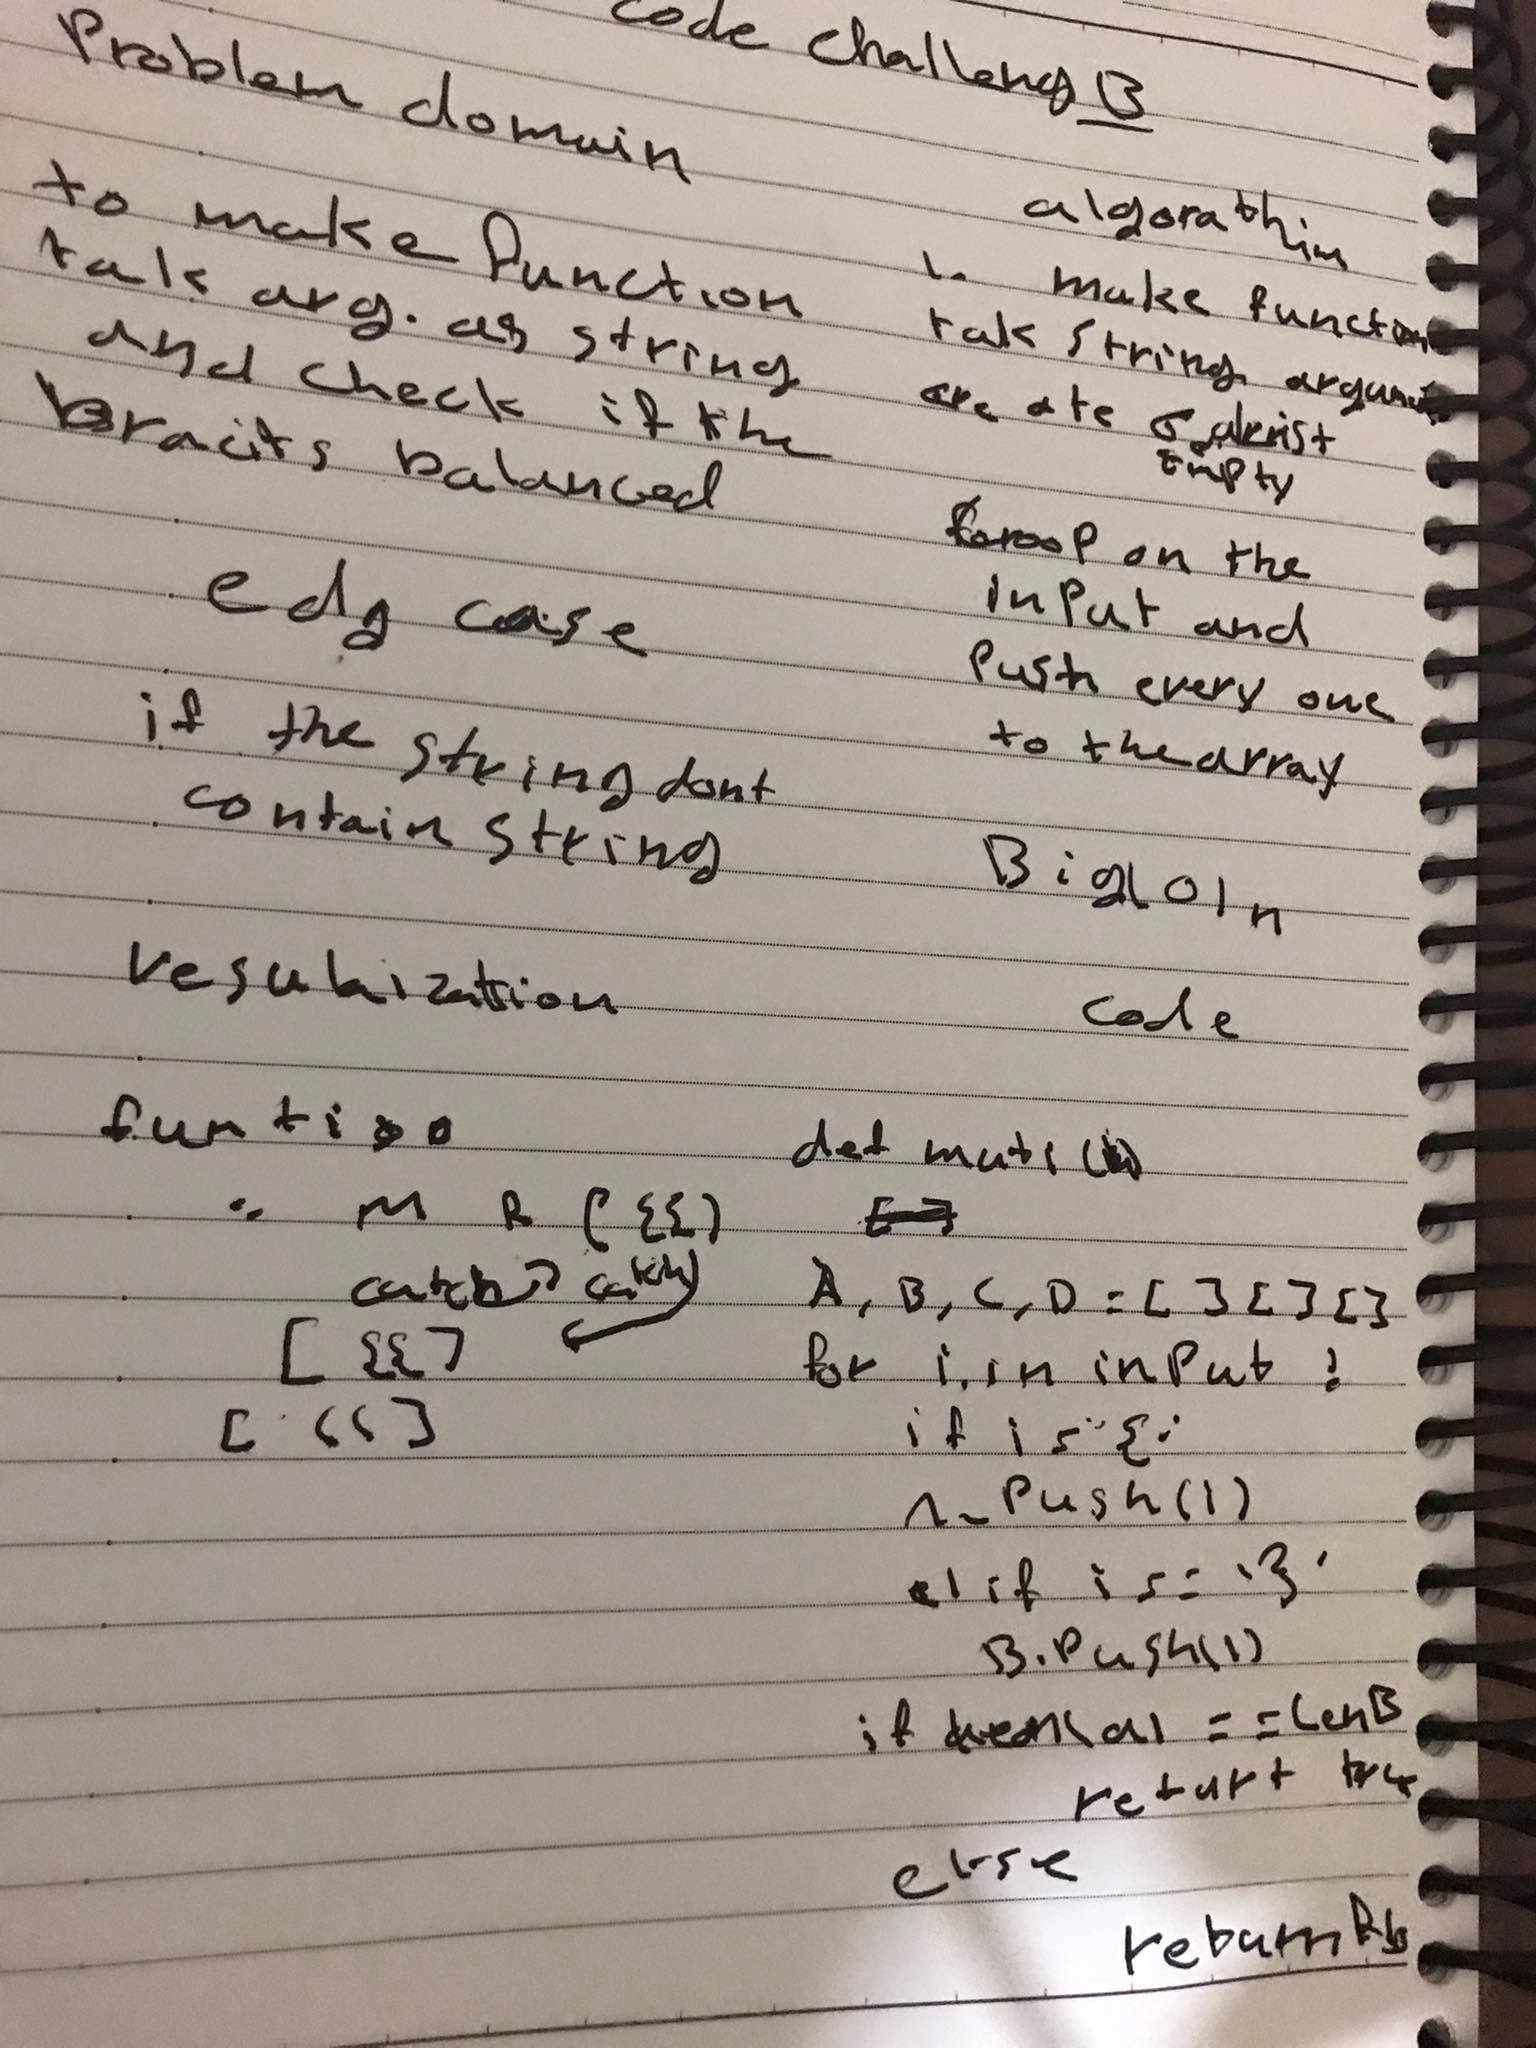 code challeng 13
Problem domain
to make function
tak arg. as string
and check if the
bracits balanced
edg case
if the string dont
contain string
vesulaization
funtion
M B ( {{ )
[ {{ ]
[ (( ]
algorathim
1- make function
tak string argument
create
Empty
on the
input and
Push every one
to the array
Big(O)n
code
def multi (
A, B, C, D = [ ] [ ] [ ]
for i in input :
if is '{'
Push(1)
elif is = '}'
B.Push(1)
if == len B
return true
else
return